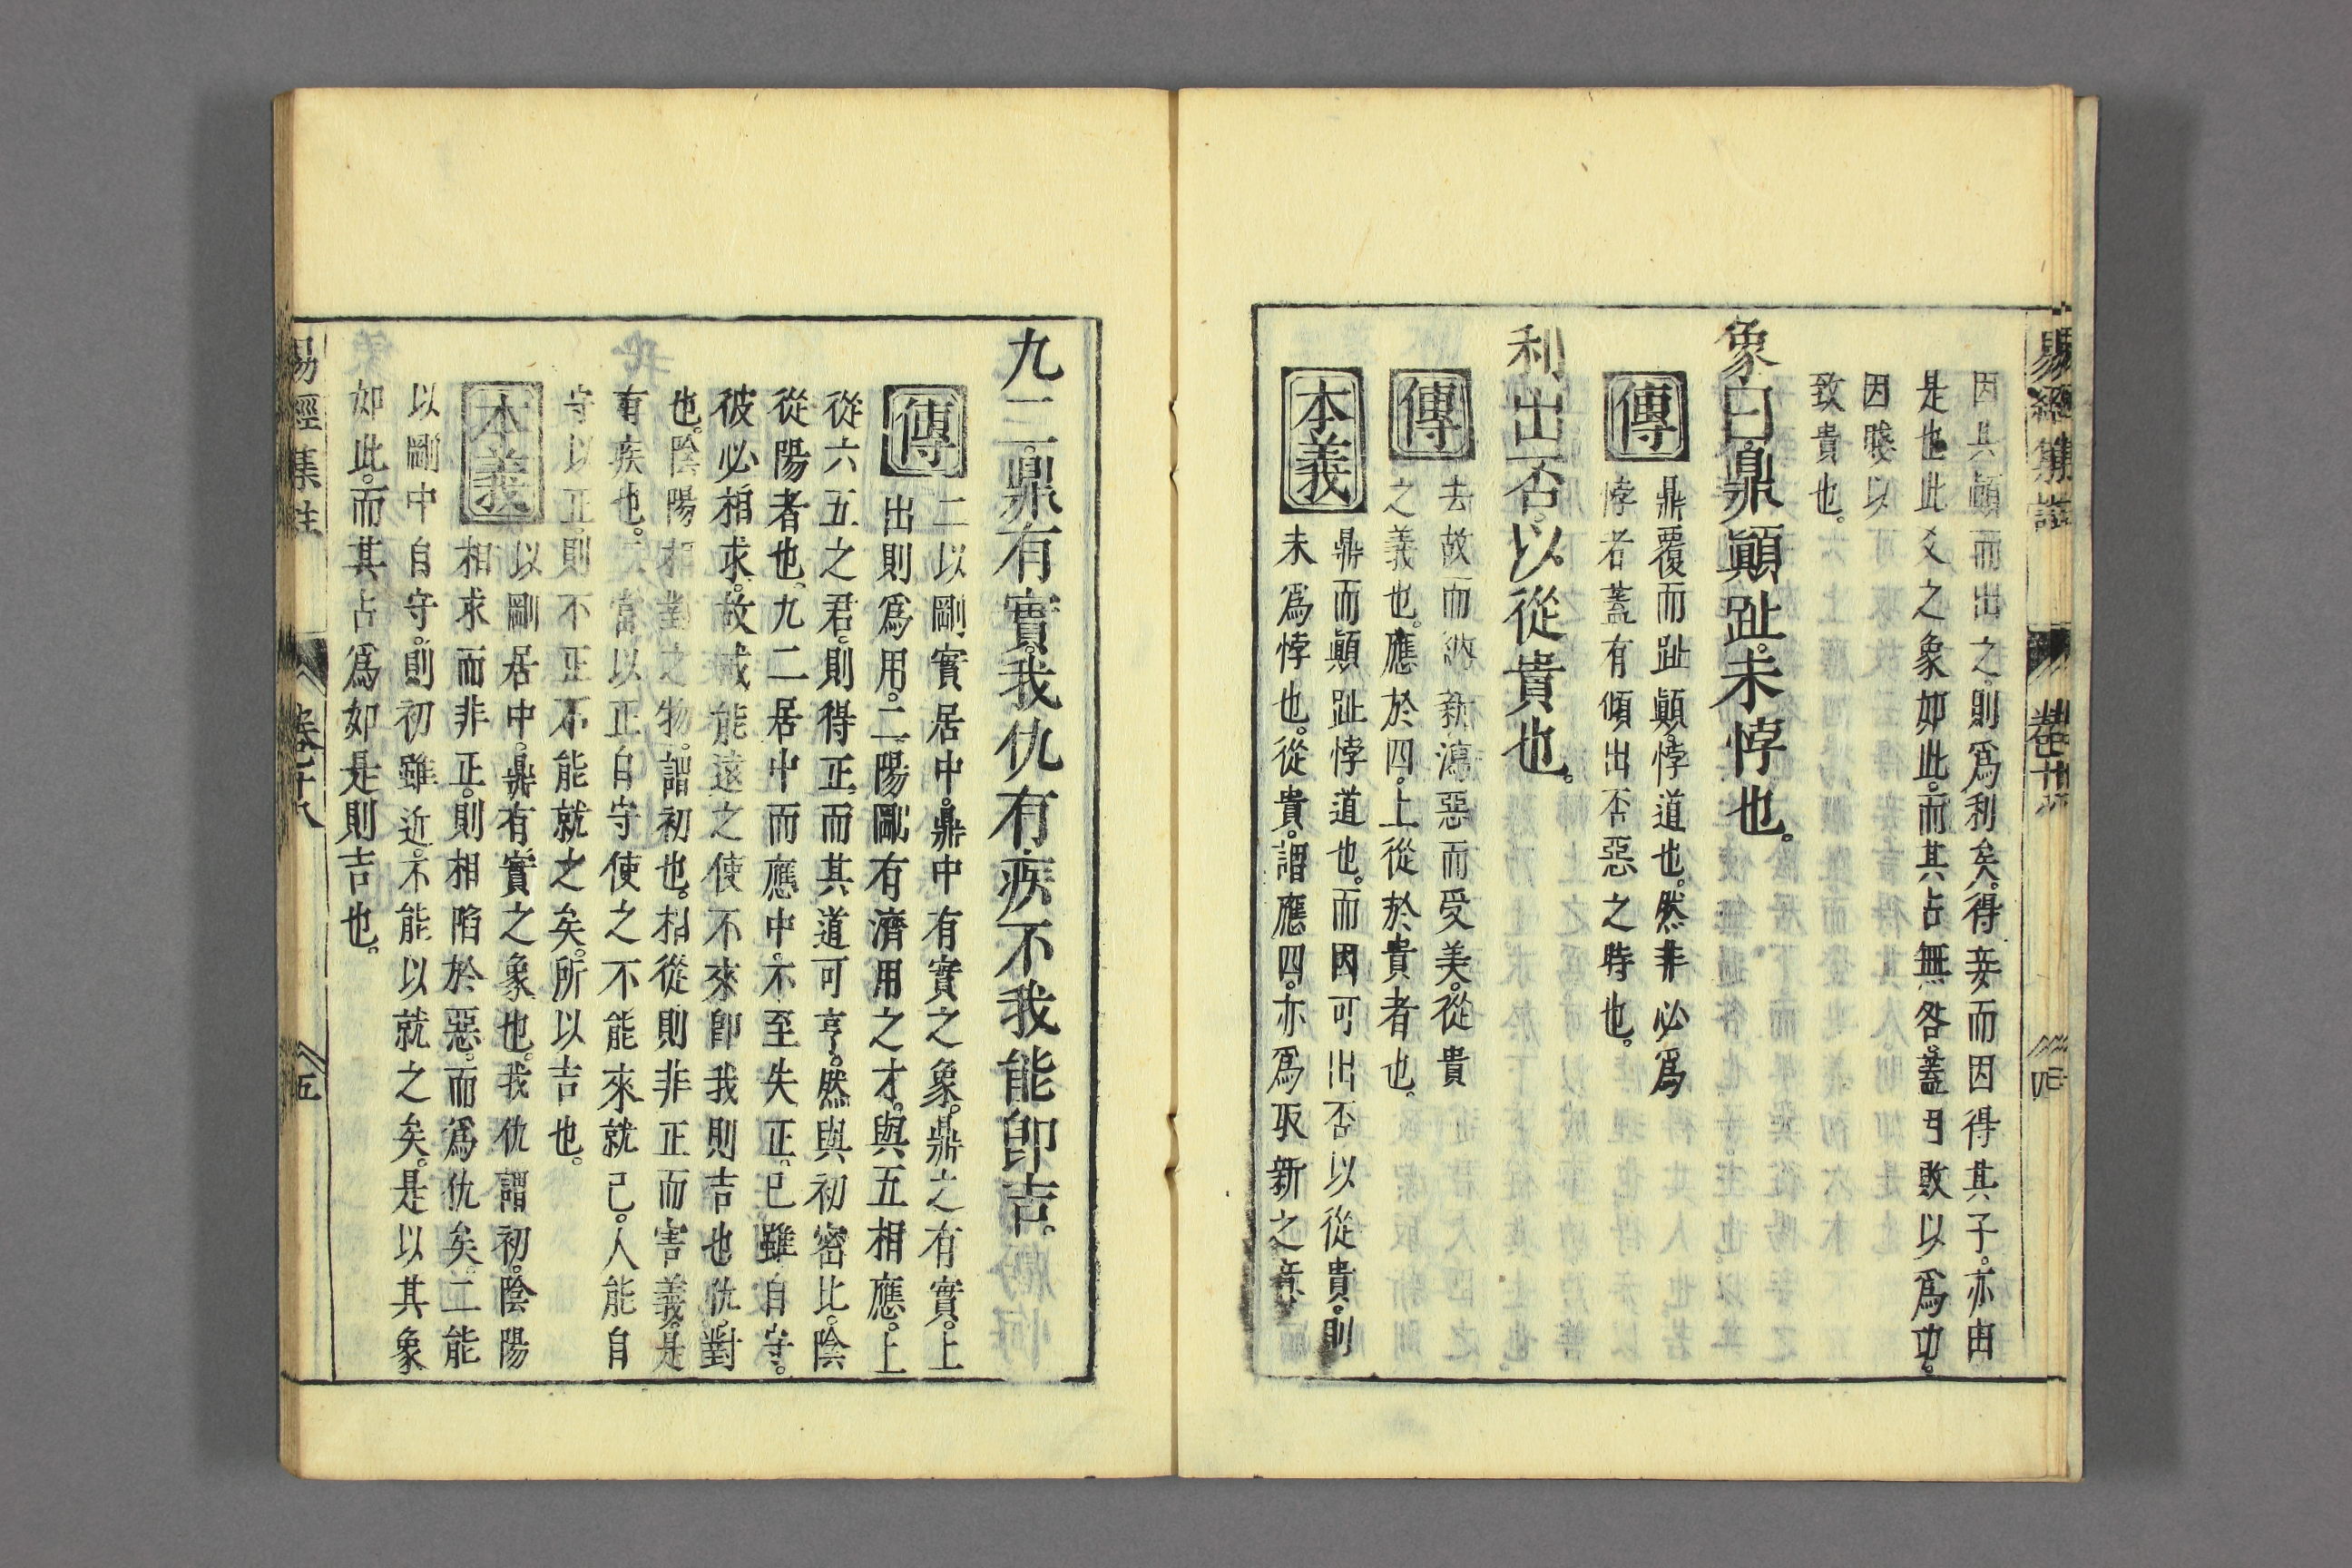 因其顚而出之。則爲利矣。得妾而因得其子。亦由
是也。此爻之象如此。而其占無咎。蓋因敗以爲功。
因賤以
致貴也。
象曰。鼎顚趾。未悖也。
傳
鼎覆而趾顚。悖道也。然非必爲
悖者。蓋有傾出否惡之時也。
利出否。以從貴也。
傳
去故而納新。瀉惡而受美。從貴
之義也。應於四。上從於貴者也。
本義
鼎而顚趾。悖道也。而因可出否以從貴。則
未爲悖也。從貴。謂應四。亦爲取新之意
易經集註 卷十八 四
九二。鼎有實。我仇有疾。不我能卽。吉。
傳
二以剛實居中。鼎中有實之象。鼎之有實。上
出則爲用。二陽剛有濟用之才。與五相應。上
從六五之君。則得正。而其道可亨。然與初密比。陰
從陽者也。九二居中而應中。不至失正。己雖自守。
彼必相求。故戒能遠之。使不來卽我則吉也。仇。對
也。陰陽相對之物。謂初也。相從則非正而害義。是
有疾也。二當以正自守。使之不能來就己。人能自
守以正。則不正不能就之矣。所以吉也。
本義
以剛居中。鼎有實之象也。我仇謂初。陰陽
相求而非正。則相陷於惡。而爲仇矣。二能
以剛中自守。則初雖近。不能以就之矣。是以其象
如此。而其占爲如是則吉也。
易經集註 卷十八 五